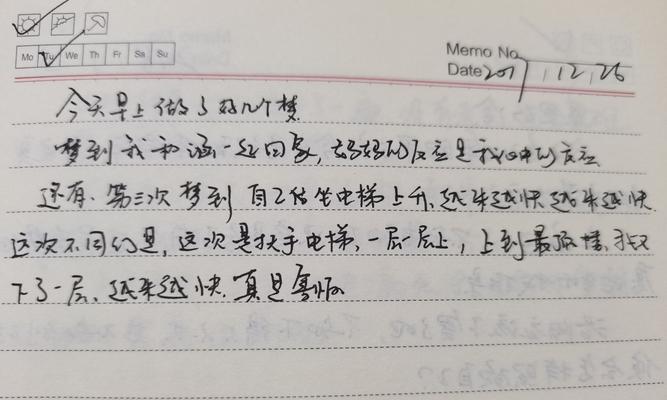 Mo Tu We Th Fr Sa Su
Memo No.
Date 2017.12.26
今天早上做了好几个梦
梦到我和涵一起回家,妈妈的反应是我的反应
还有、第三次梦到自己坐电梯上升、越来越快越来越快
这次不同的是,这次是扶手电梯,一层一层上,上到最顶楼,我又
下了一层、越来越快.真是害怕